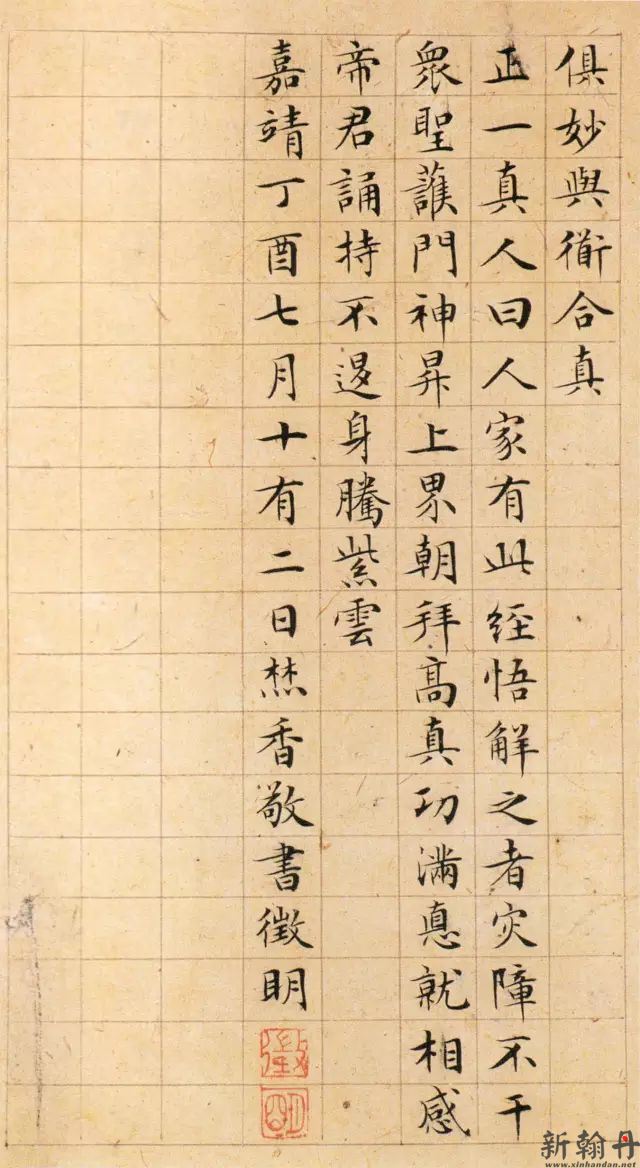 俱妙與衜合真
正一真人曰人家有此經悟解之者灾障不干
衆聖護門神昇上界朝拜高真功滿惪就相感
帝君誦持不退身騰紫雲
嘉靖丁酉七月十有二日焚香敬書徵明
徵
明
新翰丹
www.xinhandan.net